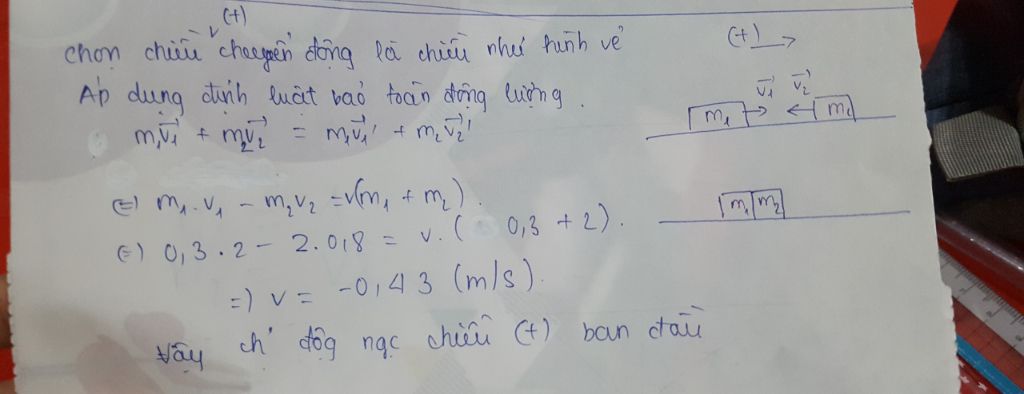 chọn chiều (+) chuyển động là chiều như hình vẽ
(+) →
Áp dụng định luật bảo toàn động lượng.
m₁v₁⃗ + m₂v₂⃗ = m₁v₁⃗' + m₂v₂⃗'
v₁⃗ v₂⃗
m₁ m₂
(=) m₁.v₁ - m₂v₂ = v(m₁ + m₂).
m₁ m₂
(=) 0,3.2 - 2.0,8 = v.(0,3 + 2).
=) v = -0,43 (m/s).
Vậy ch' độg ngc chiều (+) ban đầu